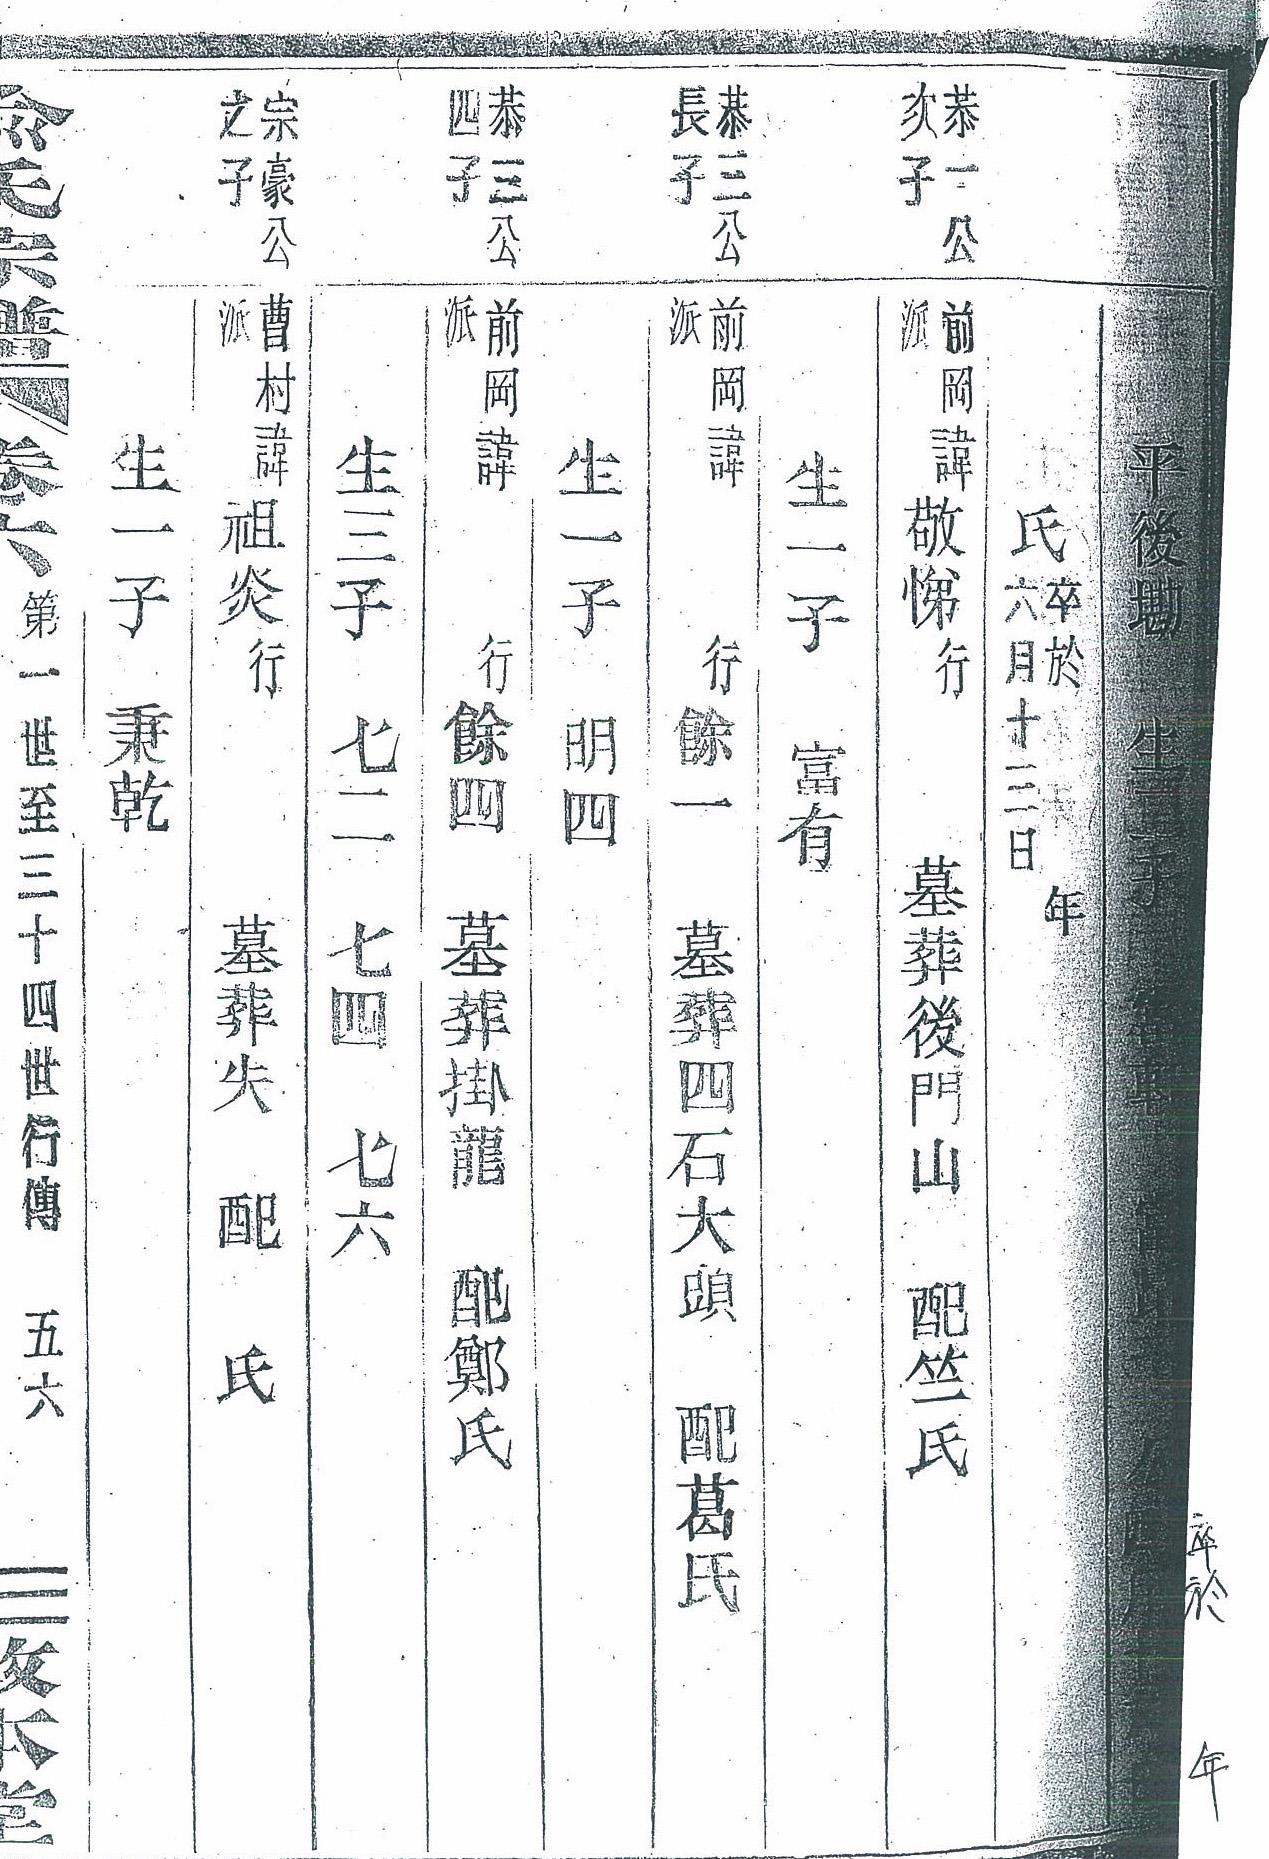 平後墈
氏卒於
年
六月十三日
恭一公
次子
前岡諱敬悌行
派
墓葬後門山 配竺氏
生一子 富有
恭三公
長子
前岡諱 行餘一
派
墓葬四石大頭 配葛氏
生一子 明四
恭三公
四子
前岡諱 行餘四
派
墓葬掛龍 配鄭氏
生三子 七二 七四 七六
宗豪公
之子
曹村諱祖炎行
派
墓葬失 配 氏
生一子 秉乾
俞氏宗譜 卷六 第一世至三十四世行傳 五六 敦本堂
卒於 年